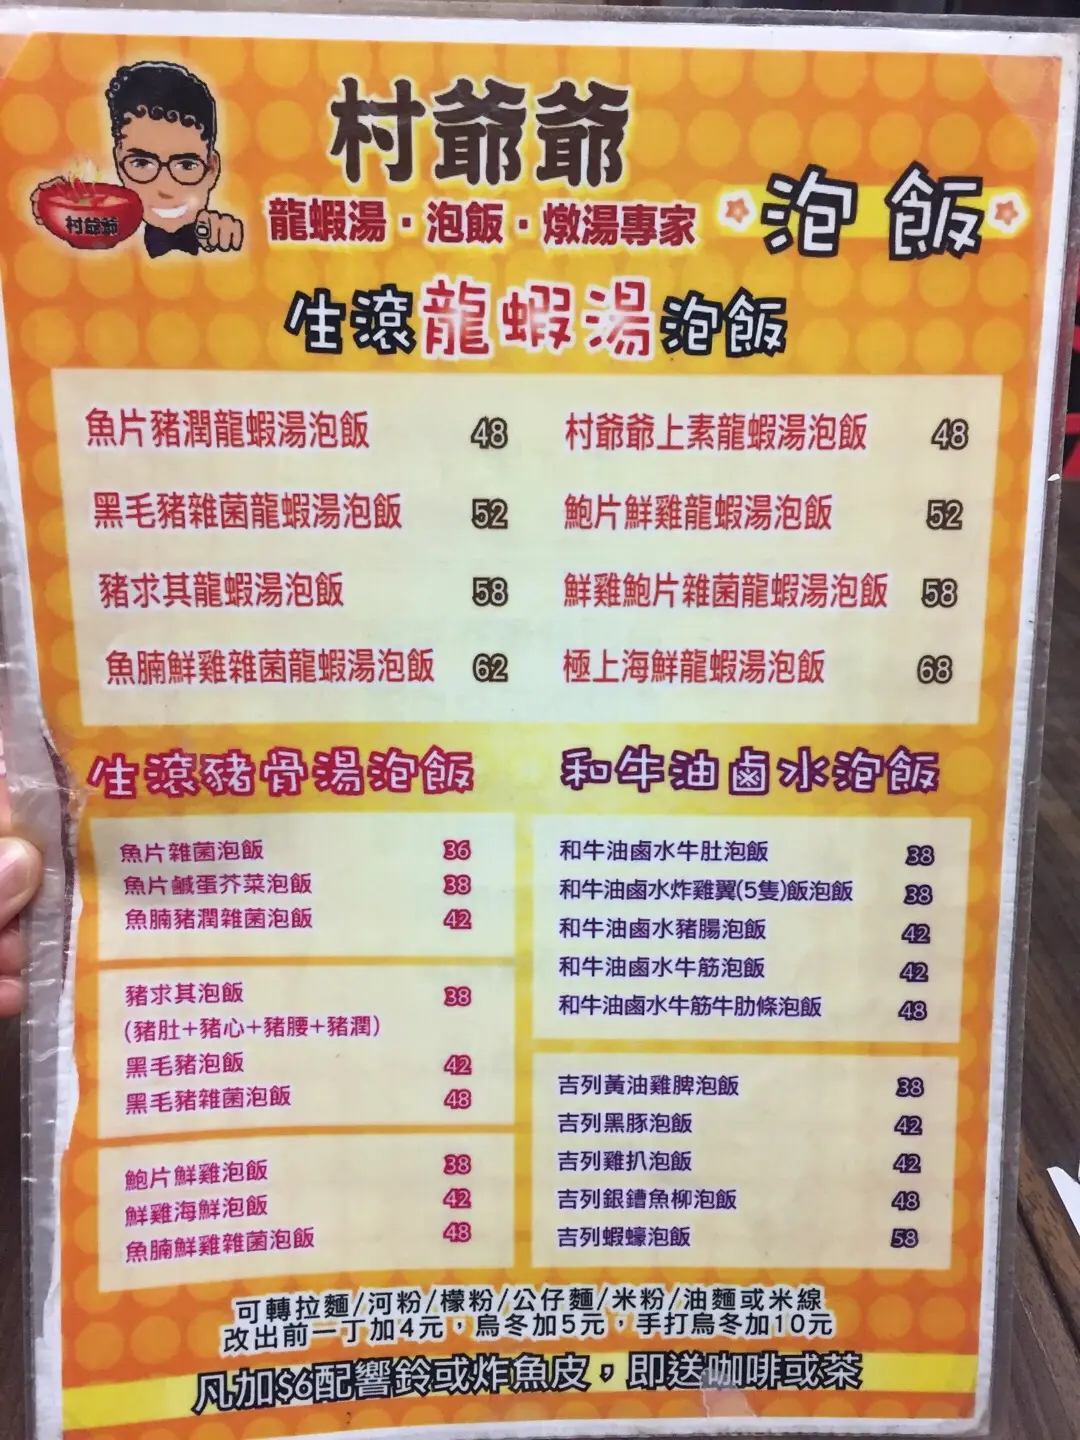 村爺爺
村爺爺
龍蝦湯·泡飯·燉湯專家
泡飯
生滾龍蝦湯泡飯
魚片豬潤龍蝦湯泡飯 48
黑毛豬雜菌龍蝦湯泡飯 52
豬求其龍蝦湯泡飯 58
魚腩鮮雞雜菌龍蝦湯泡飯 62
村爺爺上素龍蝦湯泡飯 48
鮑片鮮雞龍蝦湯泡飯 52
鮮雞鮑片雜菌龍蝦湯泡飯 58
極上海鮮龍蝦湯泡飯 68
生滾豬骨湯泡飯
魚片雜菌泡飯 36
魚片鹹蛋芥菜泡飯 38
魚腩豬潤雜菌泡飯 42
豬求其泡飯 38
(豬肚+豬心+豬腰+豬潤)
黑毛豬泡飯 42
黑毛豬雜菌泡飯 48
鮑片鮮雞泡飯 38
鮮雞海鮮泡飯 42
魚腩鮮雞雜菌泡飯 48
和牛油鹵水泡飯
和牛油鹵水牛肚泡飯 38
和牛油鹵水炸雞翼(5隻)飯泡飯 38
和牛油鹵水豬腸泡飯 42
和牛油鹵水牛筋泡飯 42
和牛油鹵水牛筋牛肋條泡飯 48
吉列黃油雞脾泡飯 38
吉列黑豚泡飯 42
吉列雞扒泡飯 42
吉列銀鱈魚柳泡飯 48
吉列蝦蠔泡飯 58
可轉拉麵/河粉/檬粉/公仔麵/米粉/油麵或米線
改出前一丁加4元，烏冬加5元，手打烏冬加10元
凡加$6配響鈴或炸魚皮，即送咖啡或茶